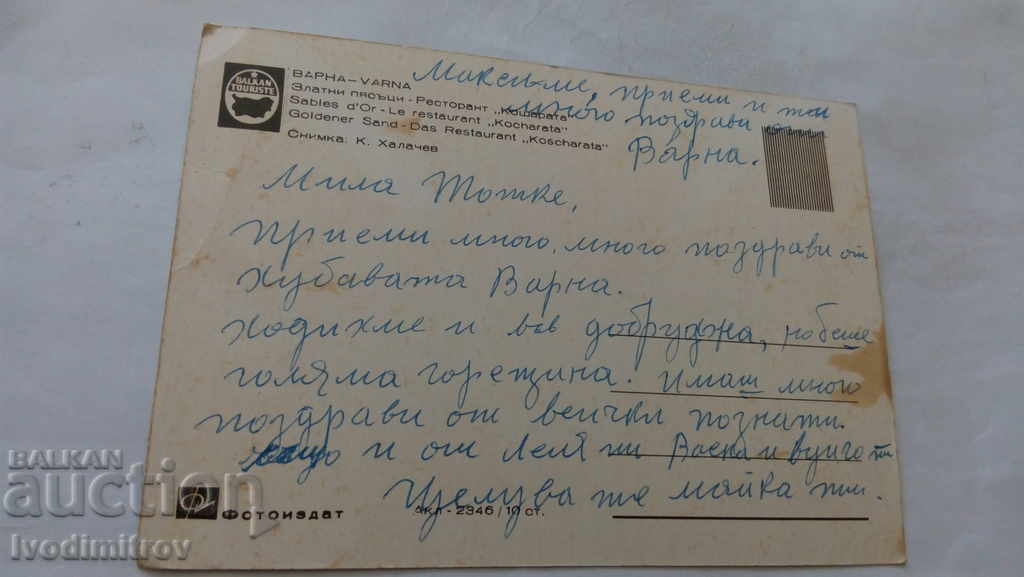 BALKAN TOURISTE
ВАРНА – VARNA
Златни пясъци - Ресторант „Кошарата"
Sables d'Or - Le restaurant „Kocharata"
Goldener Sand - Das Restaurant „Koscharata"
Снимка: К. Халачев
приеми и ти
много поздрави от
Варна.
Мила Тотке,
приеми много, много поздрави от
хубавата Варна.
Ходихме и във добруджа, но беше
голяма горещина. Имаш много
поздрави от всички познати.
и от леля ти и вуйчо ти
Целува те майка ти.
Фотоиздат
АКЛ - 2346 / 10 ст.
BALKAN
auction
Ivodimitrov